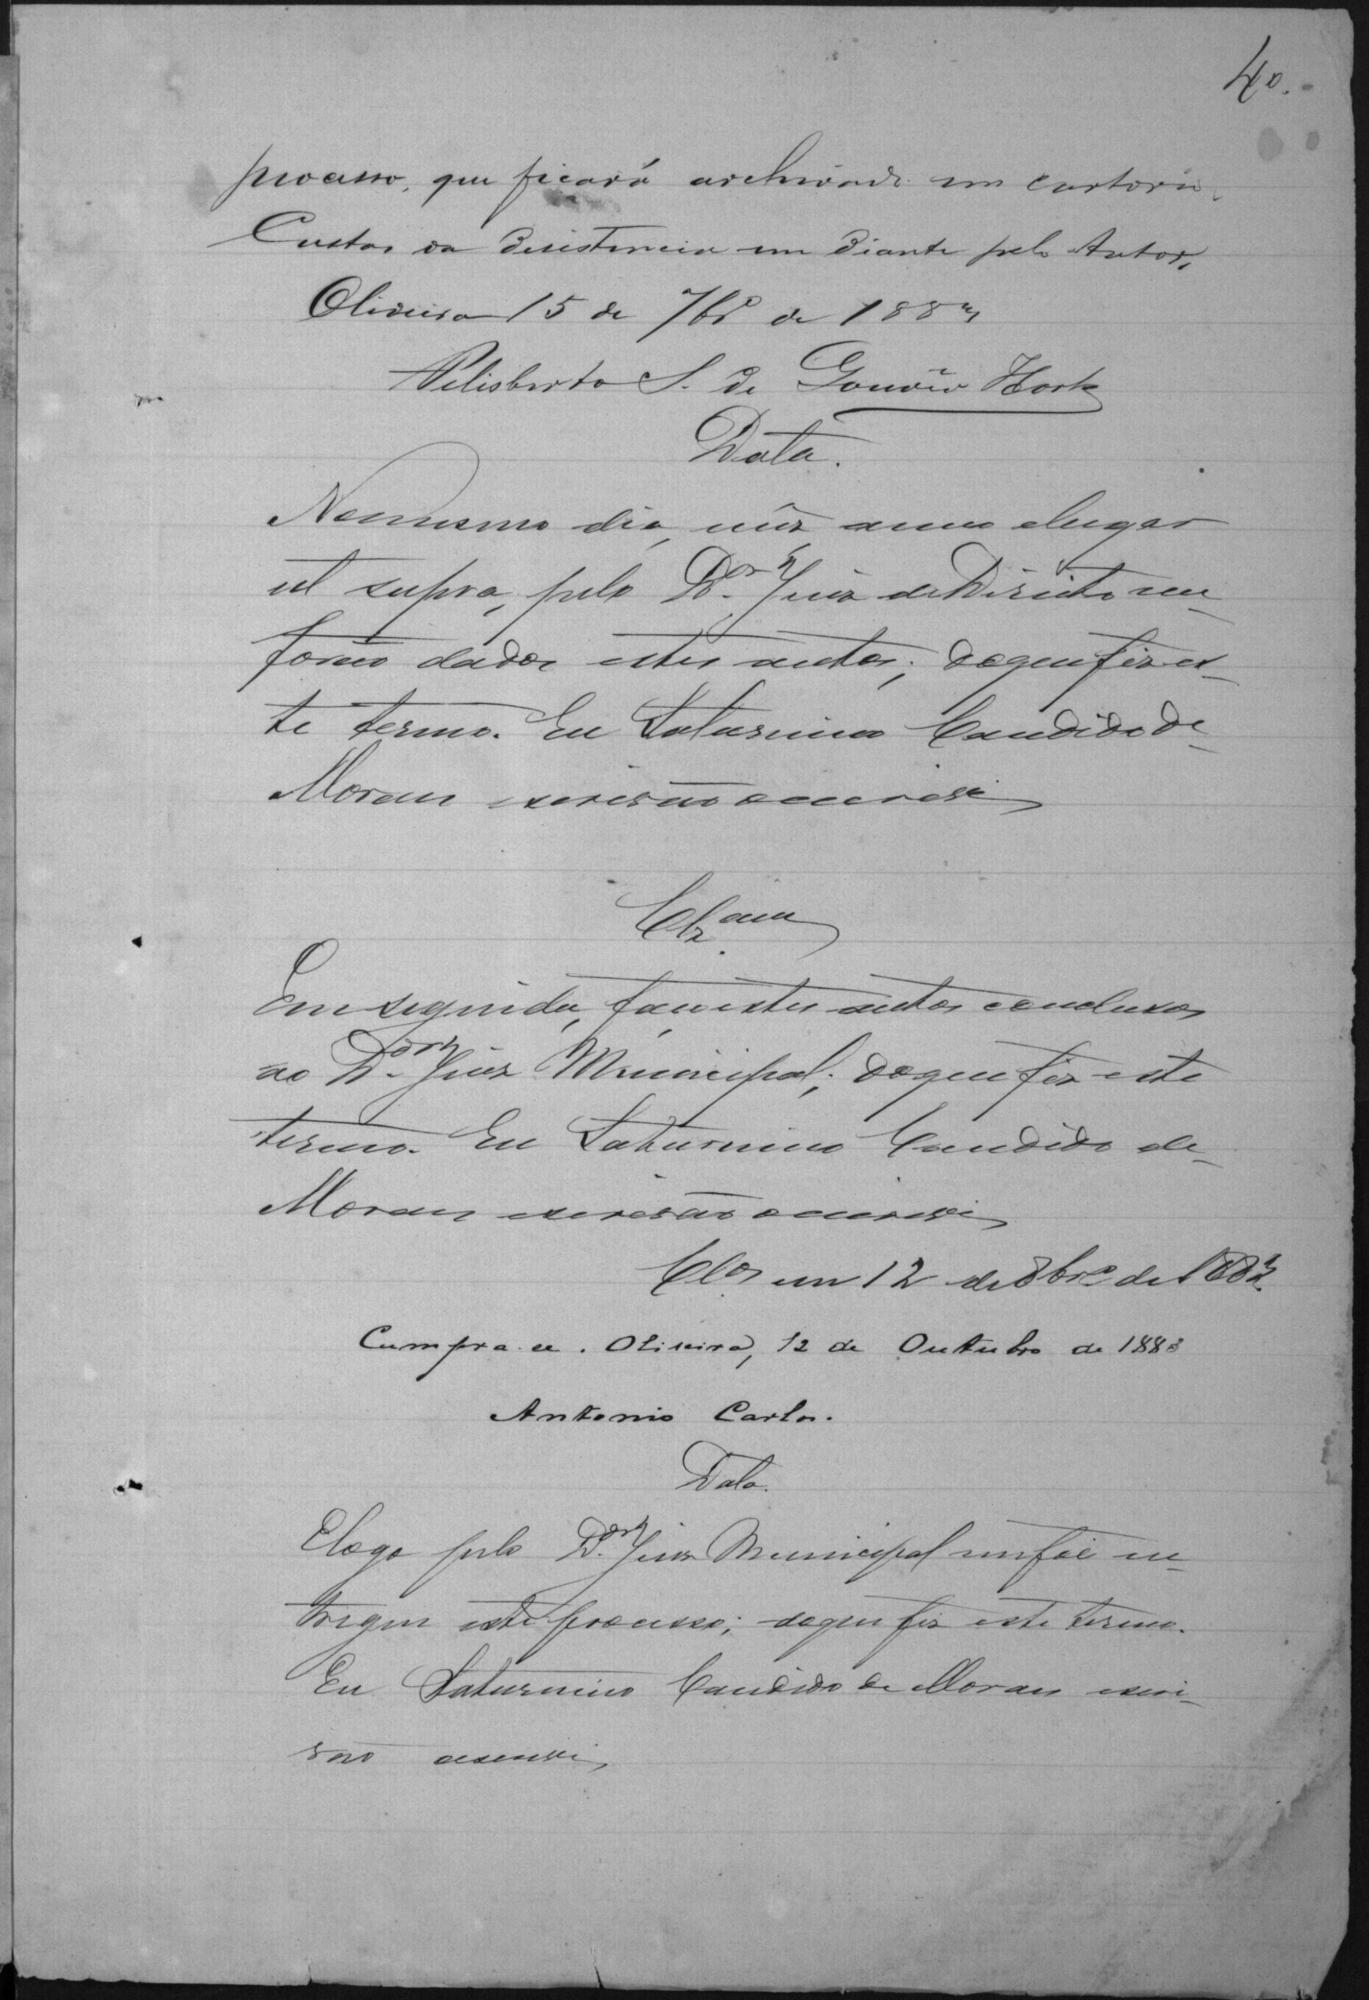 40.
processo, que ficará archivado em cartorio.
Custas da desistencia em diante pelo Autor,
Oliveira 15 de 7bro de 1883
Felisberto S. de Gouvêa Horta
Data.
No mesmo dia, mez, anno e lugar
ut supra, pelo Dor. Juiz de Direito me
forão dados estes autos; do que fiz es-
te termo. Eu Saturnino Candido de
Moraes escrivão o escrevi
Clzam
Em seguida, faço estes autos conclusos
ao Dor. Juiz Municipal; do que fiz este
termo. Eu Saturnino Candido de
Moraes escrivão o escrevi
Clos em 12 de 8bro de 1883.
Cumpra-se. Oliveira, 12 de Outubro de 1883
Antonio Carlos.
Data.
E logo pelo Dor. Juiz Municipal me foi en-
tregue este processo; do que fiz este termo.
Eu Saturnino Candido de Moraes escri-
vão o escrevi